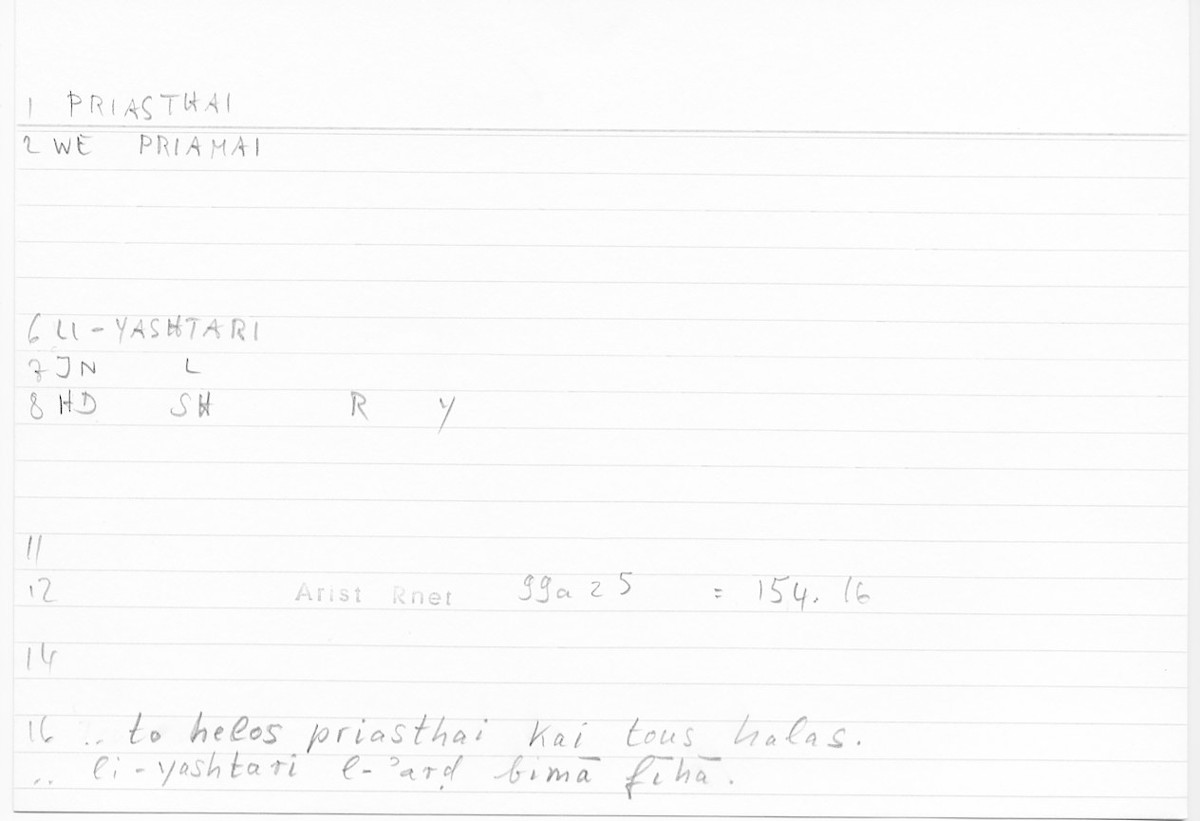 1 PRIASTHAI
2 WE PRIAMAI
6 LI-YASHTARI
7 JN L
8 HD SH R Y
11
12 Arist Rhet 99a25 = 154.16
14
16 .. to helos priasthai kai tous halas.
.. li-yashtari l-ʾarḍ bimā fīhā.